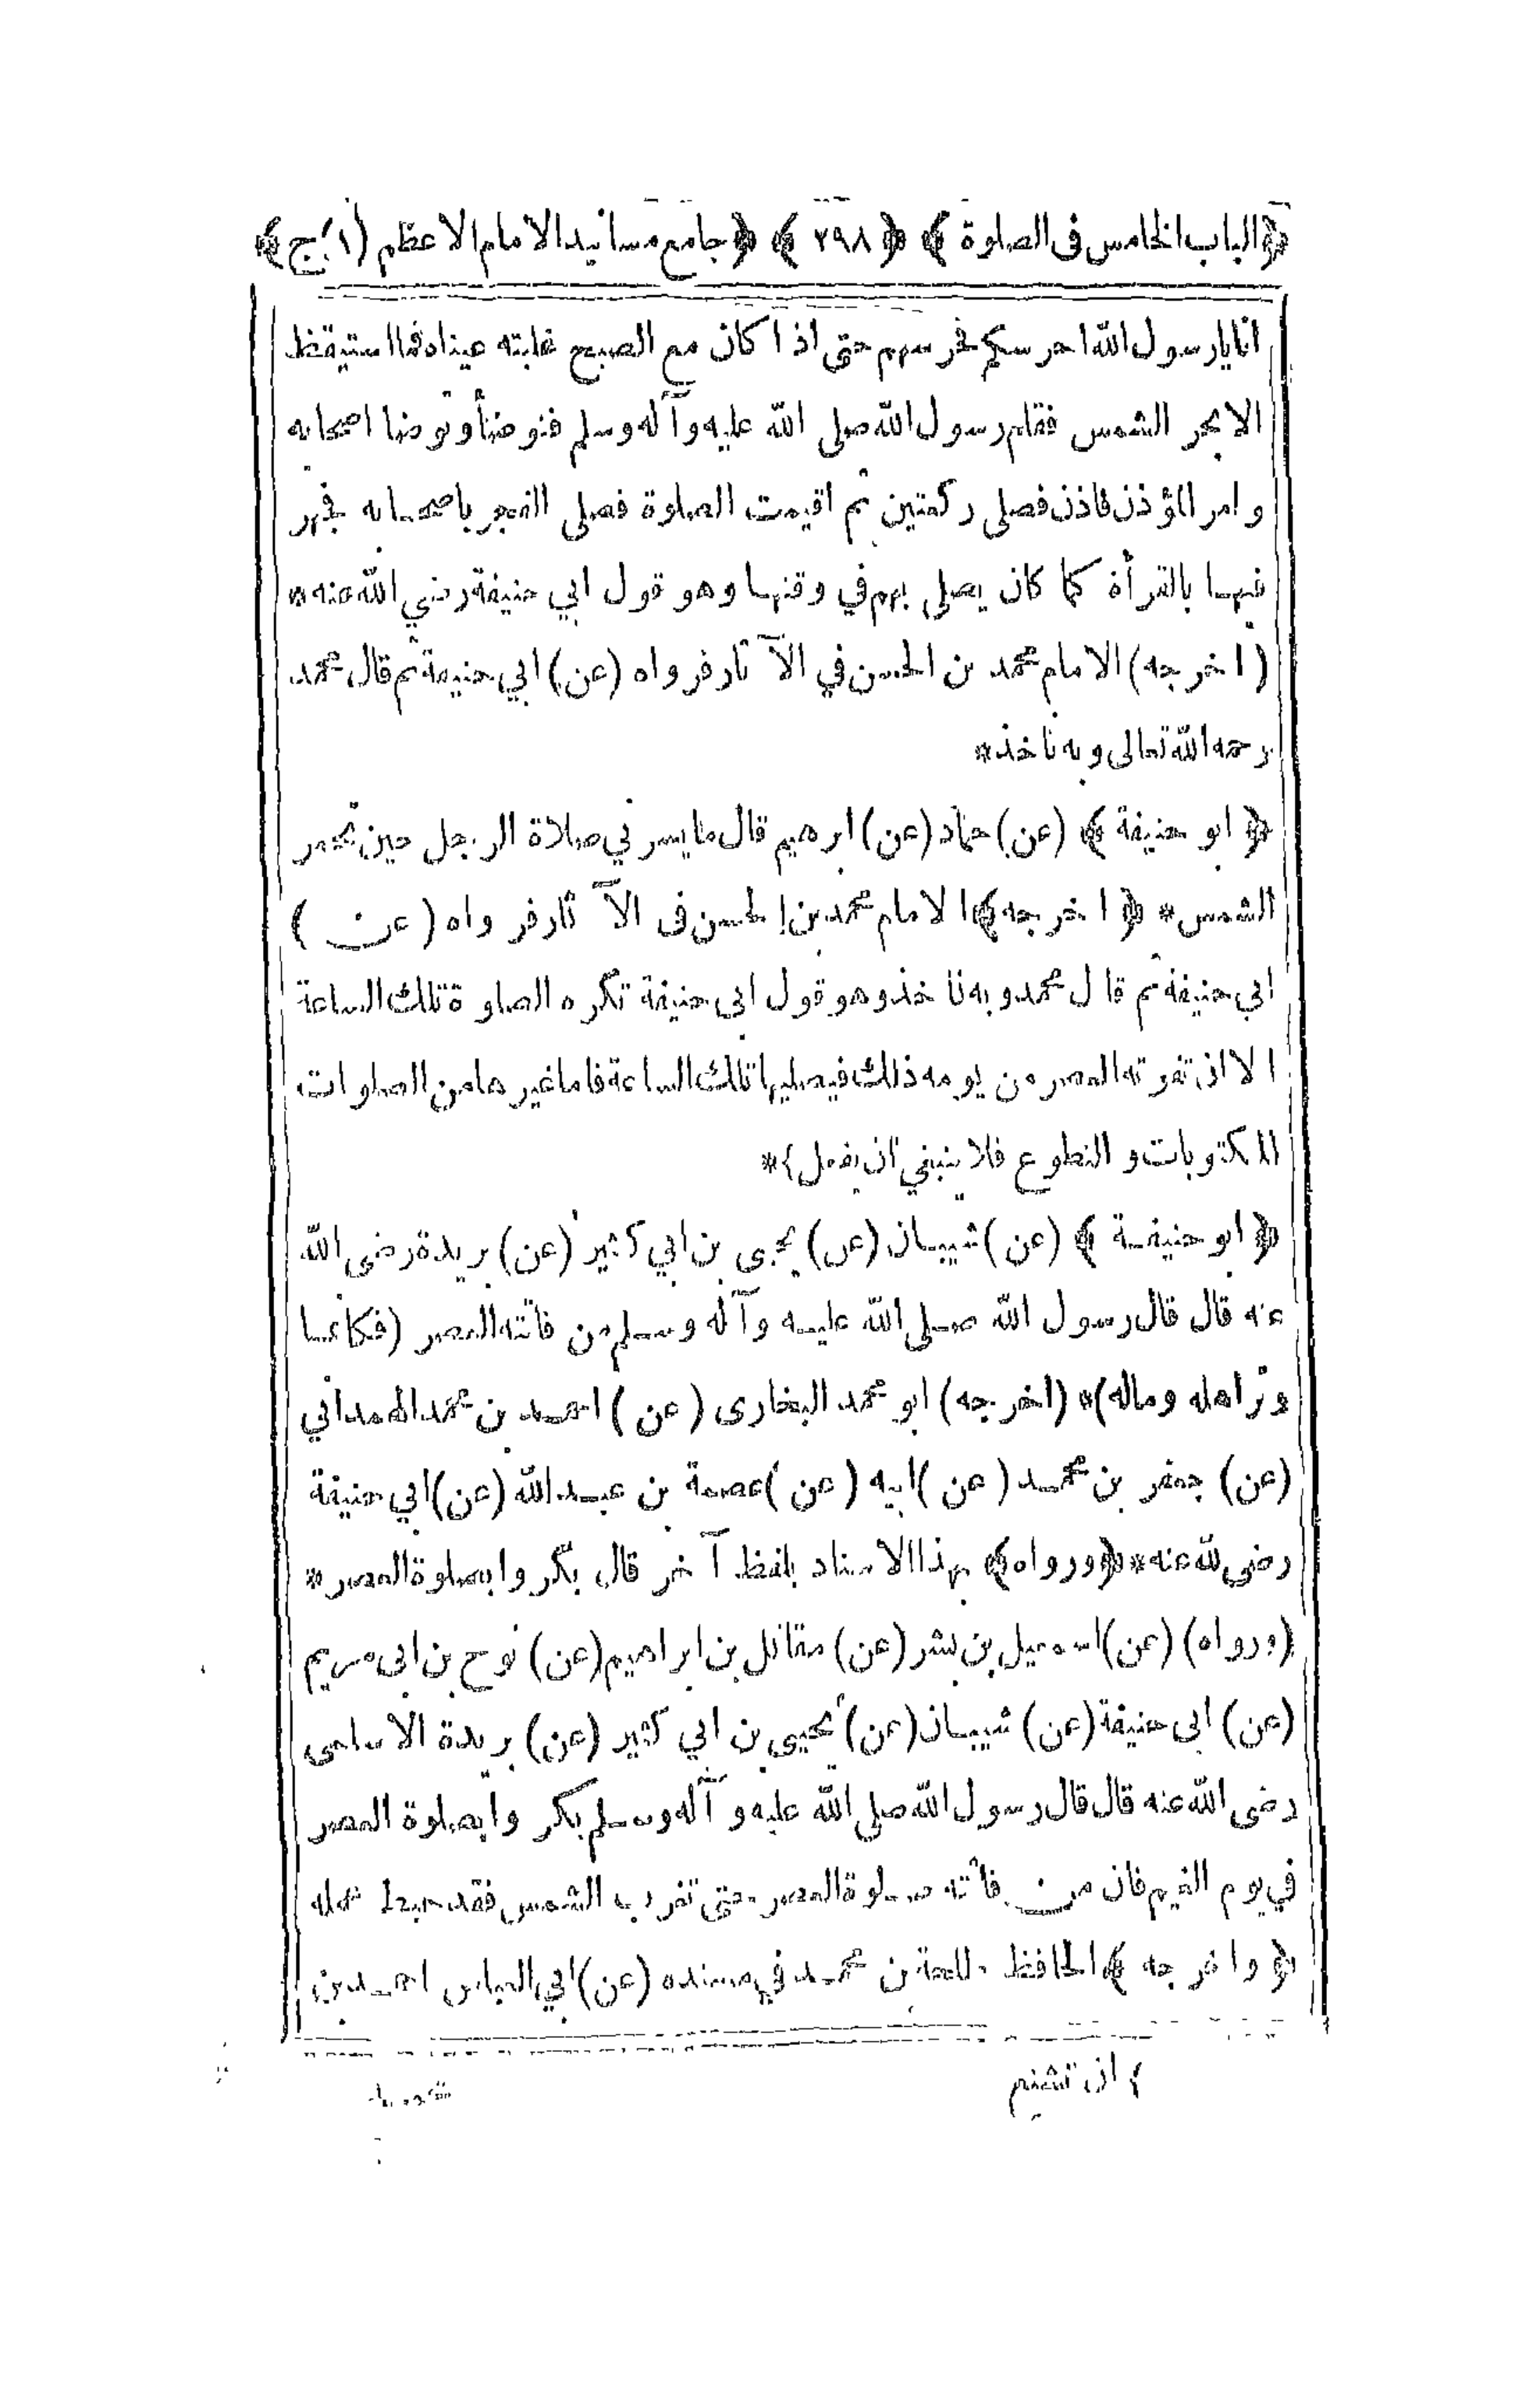 ﴿الباب الخامس فى الصلوة﴾ ﴿٢٩٨﴾ ﴿جامع مسانيد الامام الاعظم (١) ج﴾
انا يا رسول الله احرسكم فحرسهم حتى اذا كان مع الصبح غلبته عيناه فما استيقظ
الا بحر الشمس فقام رسول الله صلى الله عليه وآله وسلم فتوضأ وتوضا اصحابه
وامر المؤذن فاذن فصلى ركعتين ثم اقيمت الصلوة فصلى الفجر باصحابه فجهر
فيها بالقرأة كما كان يصلى بهم في وقتها وهو قول ابي حنيفة رضي الله عنه *
(اخرجه) الامام محمد بن الحسن في الآثار فرواه (عن) ابي حنيفة ثم قال محمد
رحمه الله تعالى وبه ناخذ *
﴿ابو حنيفة﴾ (عن) حماد (عن) ابرهيم قال ما يسرني صلاة الرجل حين تحمر
الشمس * ﴿اخرجه﴾ الامام محمد بن الحسن فى الآثار فرواه (عن)
ابي حنيفة ثم قال محمد وبه نا خذ وهو قول ابى حنيفة تكره الصلوة تلك الساعة
الا ان تفوته العصر من يومه ذلك فيصليها تلك الساعة فاما غيرها من الصلوات
المكتوبات والتطوع فلا ينبغي ان يفعل *
﴿ابو حنيفة﴾ (عن) شيبان (عن) يحيى بن ابي كثير (عن) بريدة رضى الله
عنه قال قال رسول الله صلى الله عليه وآله وسلم من فاتته العصر (فكانما
وتر اهله وماله) * (اخرجه) ابو محمد البخارى (عن) احمد بن محمد الهمداني
(عن) جعفر بن محمد (عن) ابيه (عن) عصمة بن عبد الله (عن) ابي حنيفة
رضى الله عنه * ﴿ورواه﴾ بهذا الاسناد بلفظ آخر قال بكروا بصلوة العصر *
(ورواه) (عن) اسمعيل بن بشر (عن) مقاتل بن ابراهيم (عن) نوح بن ابى مريم
(عن) ابى حنيفة (عن) شيبان (عن) يحيى بن ابي كثير (عن) بريدة الاسلمى
رضى الله عنه قال قال رسول الله صلى الله عليه وآله وسلم بكروا بصلوة العصر
في يوم الغيم فان من فاتته صلوة العصر حتى تغرب الشمس فقد حبط عمله
﴿واخرجه﴾ الحافظ طلحة بن محمد في مسنده (عن) ابي العباس احمد بن
ان تشتم